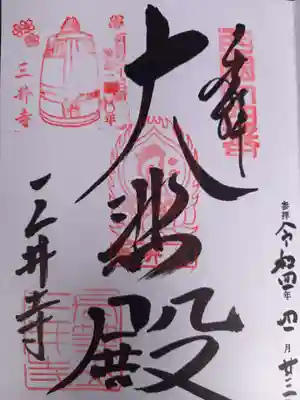 奉拝
西国十四番
大悲殿
三井寺
三井寺
参拝 令和四年 四月 廿三